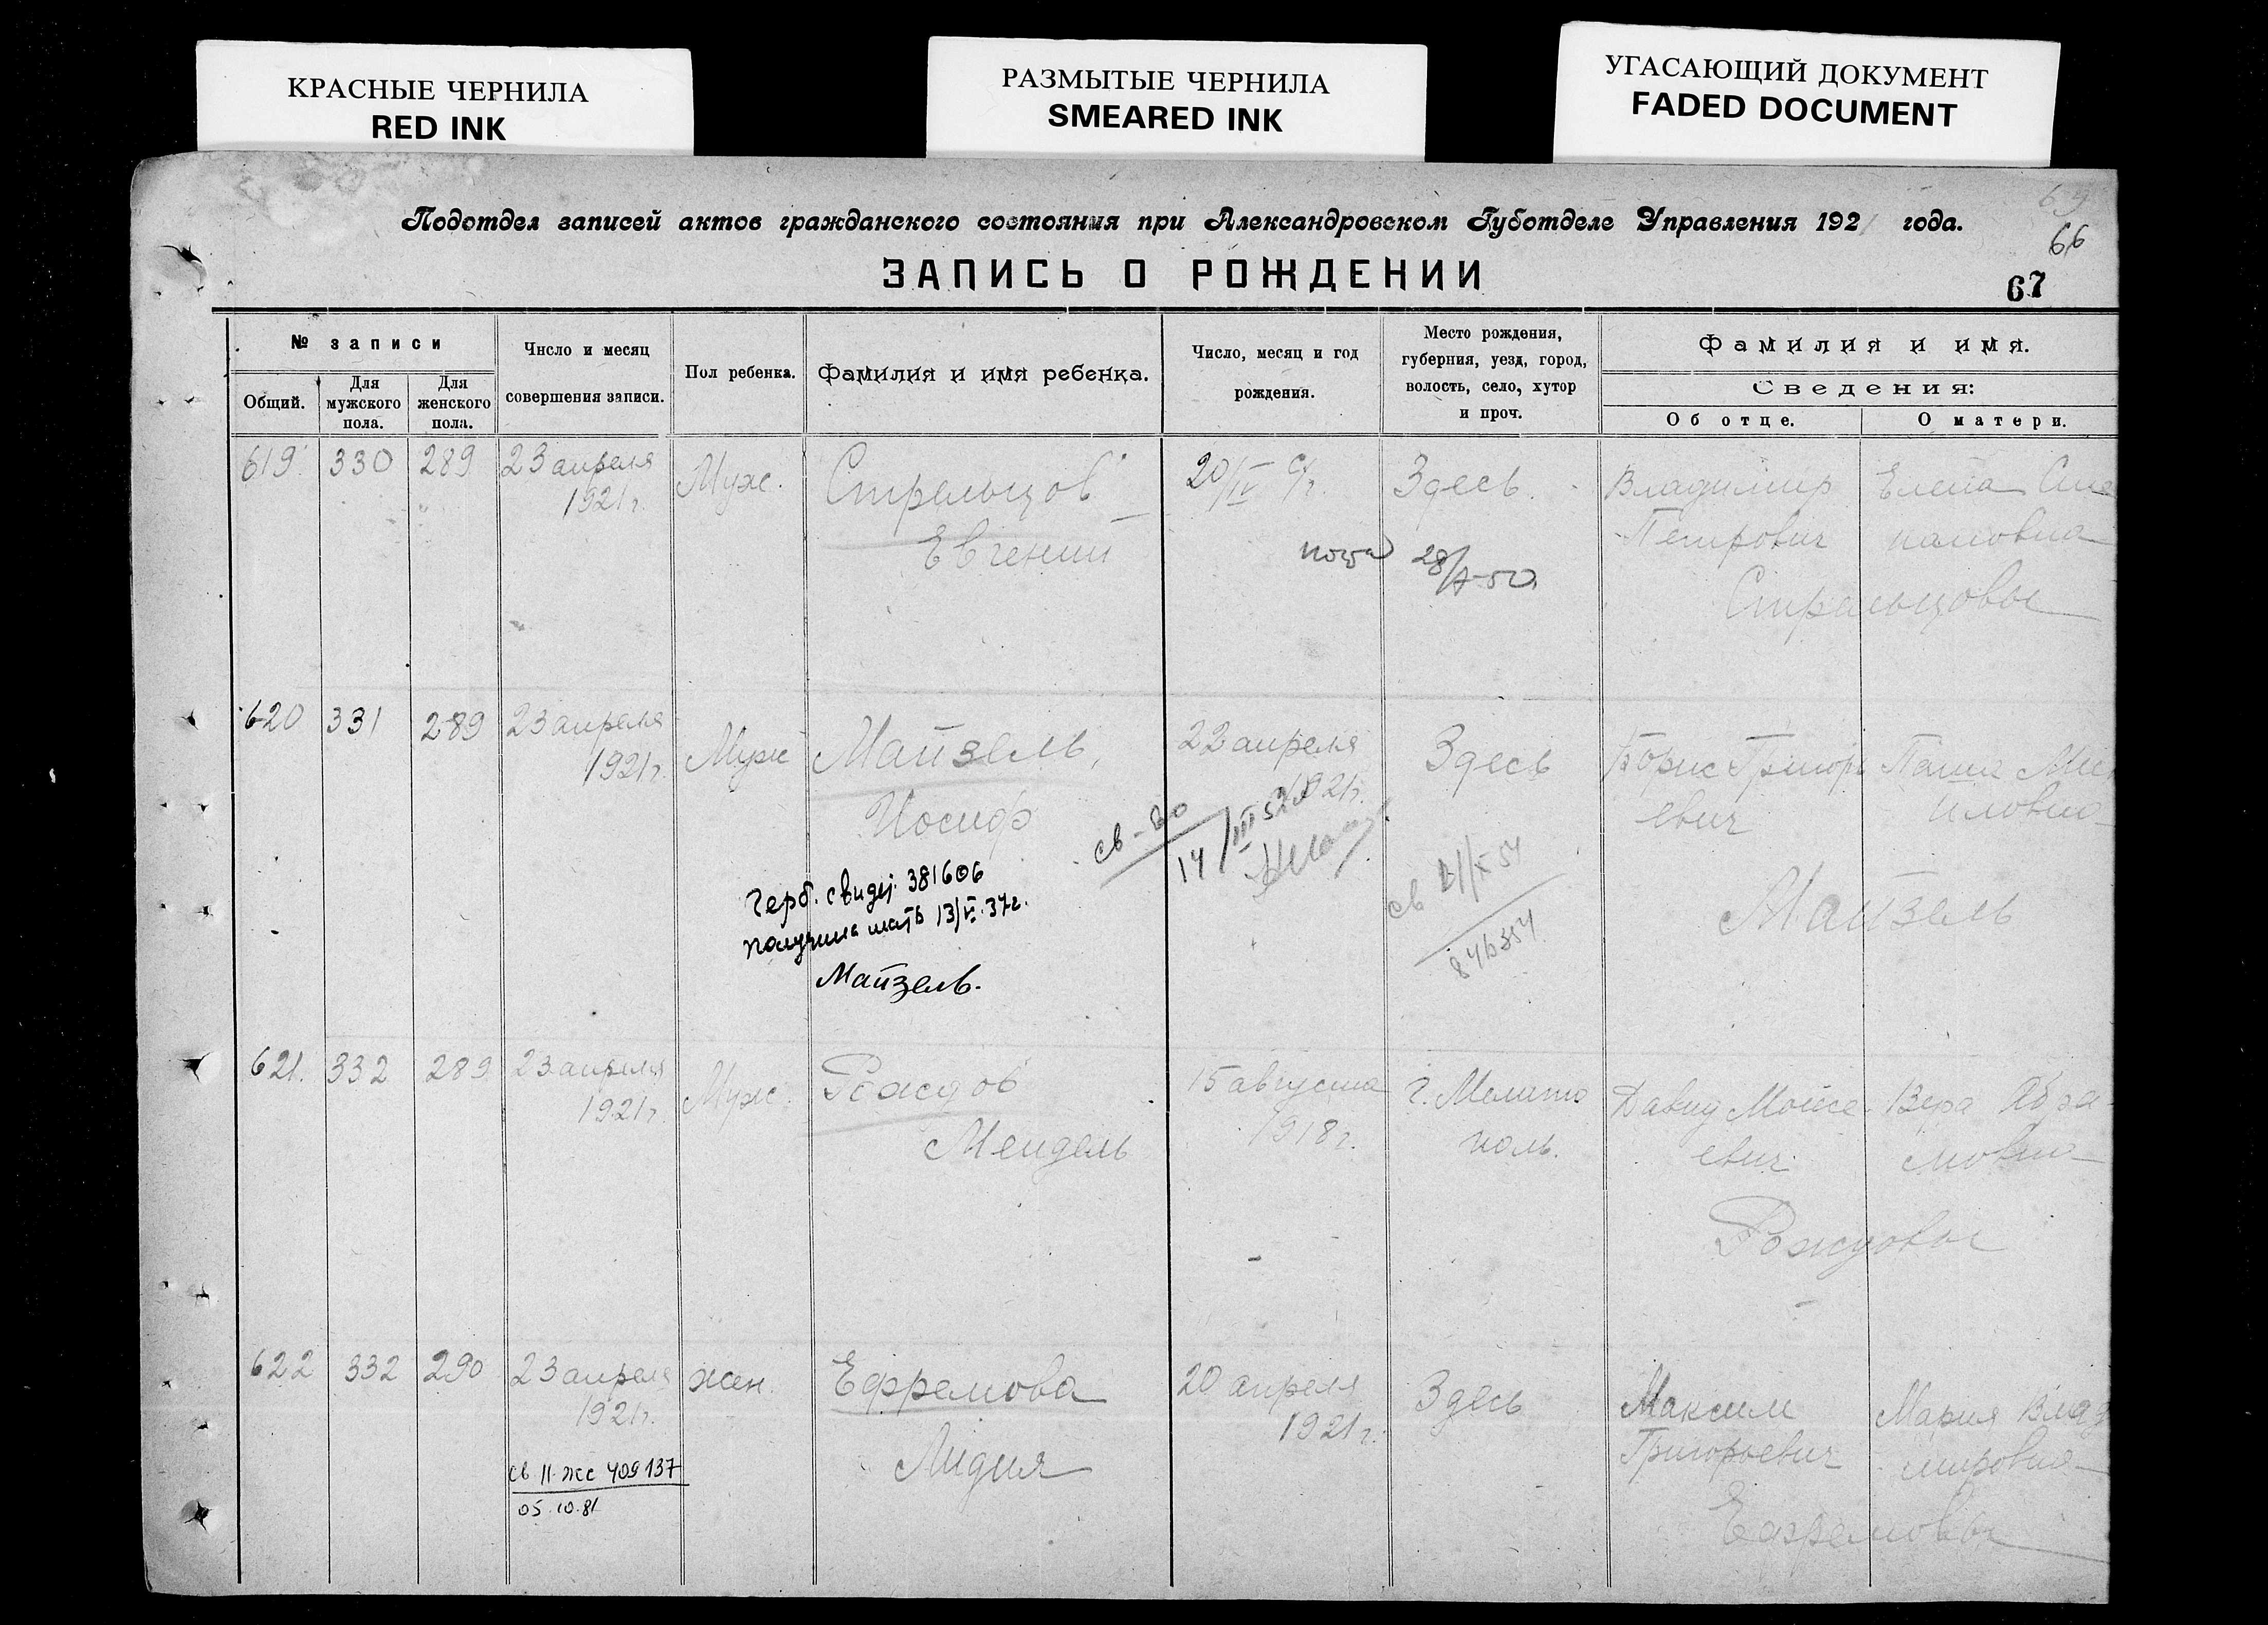 КРАСНЫЕ ЧЕРНИЛА
RED INK
РАЗМЫТЫЕ ЧЕРНИЛА
SMEARED INK
УГАСАЮЩИЙ ДОКУМЕНТ
FADED DOCUMENT
69
66
67
Подотдел записей актов гражданского состояния при Александровском Губотделе Управления 1921 года.
ЗАПИСЬ О РОЖДЕНИИ
№ записи
Общий.
Для мужского пола.
Для женского пола.
Число и месяц
совершения записи.
Пол ребенка.
Фамилия и имя ребенка.
Число, месяц и год
рождения.
Место рождения,
губерния, уезд, город,
волость, село, хутор
и проч.
Фамилия и имя.
Сведения:
Об отце.
О матери.
619. 330 289 23 апреля
1921 г.
Муж.
Стрельцов
Евгений
20/IV с/г.
Здесь.
Владимир
Петрович
Елена
Стрельцовы
28/
620 331 289 23 апреля
1921 г.
Муж
Майзель,
Иосиф
22 апреля
1921 г.
Здесь
Борис Григорь
евич
Майзель
Герб. свидет. 381606
получила мать 13/V. 37 г.
Майзель.
св
14/III 52
св 21/X 54
846354
621. 332 289 23 апреля
1921 г.
Муж.
Мендель
15 августа
1918 г.
г. Мелито
поль.
Давид Моисе
евич
Вера Абра
мовна
622 332 290 23 апреля
1921 г.
жен.
Ефремова
Лидия
20 апреля
1921 г.
Здесь
Максим
Григорьевич
Мария Влад
мировна
Ефремовы
св II-жс 409137
05.10.81